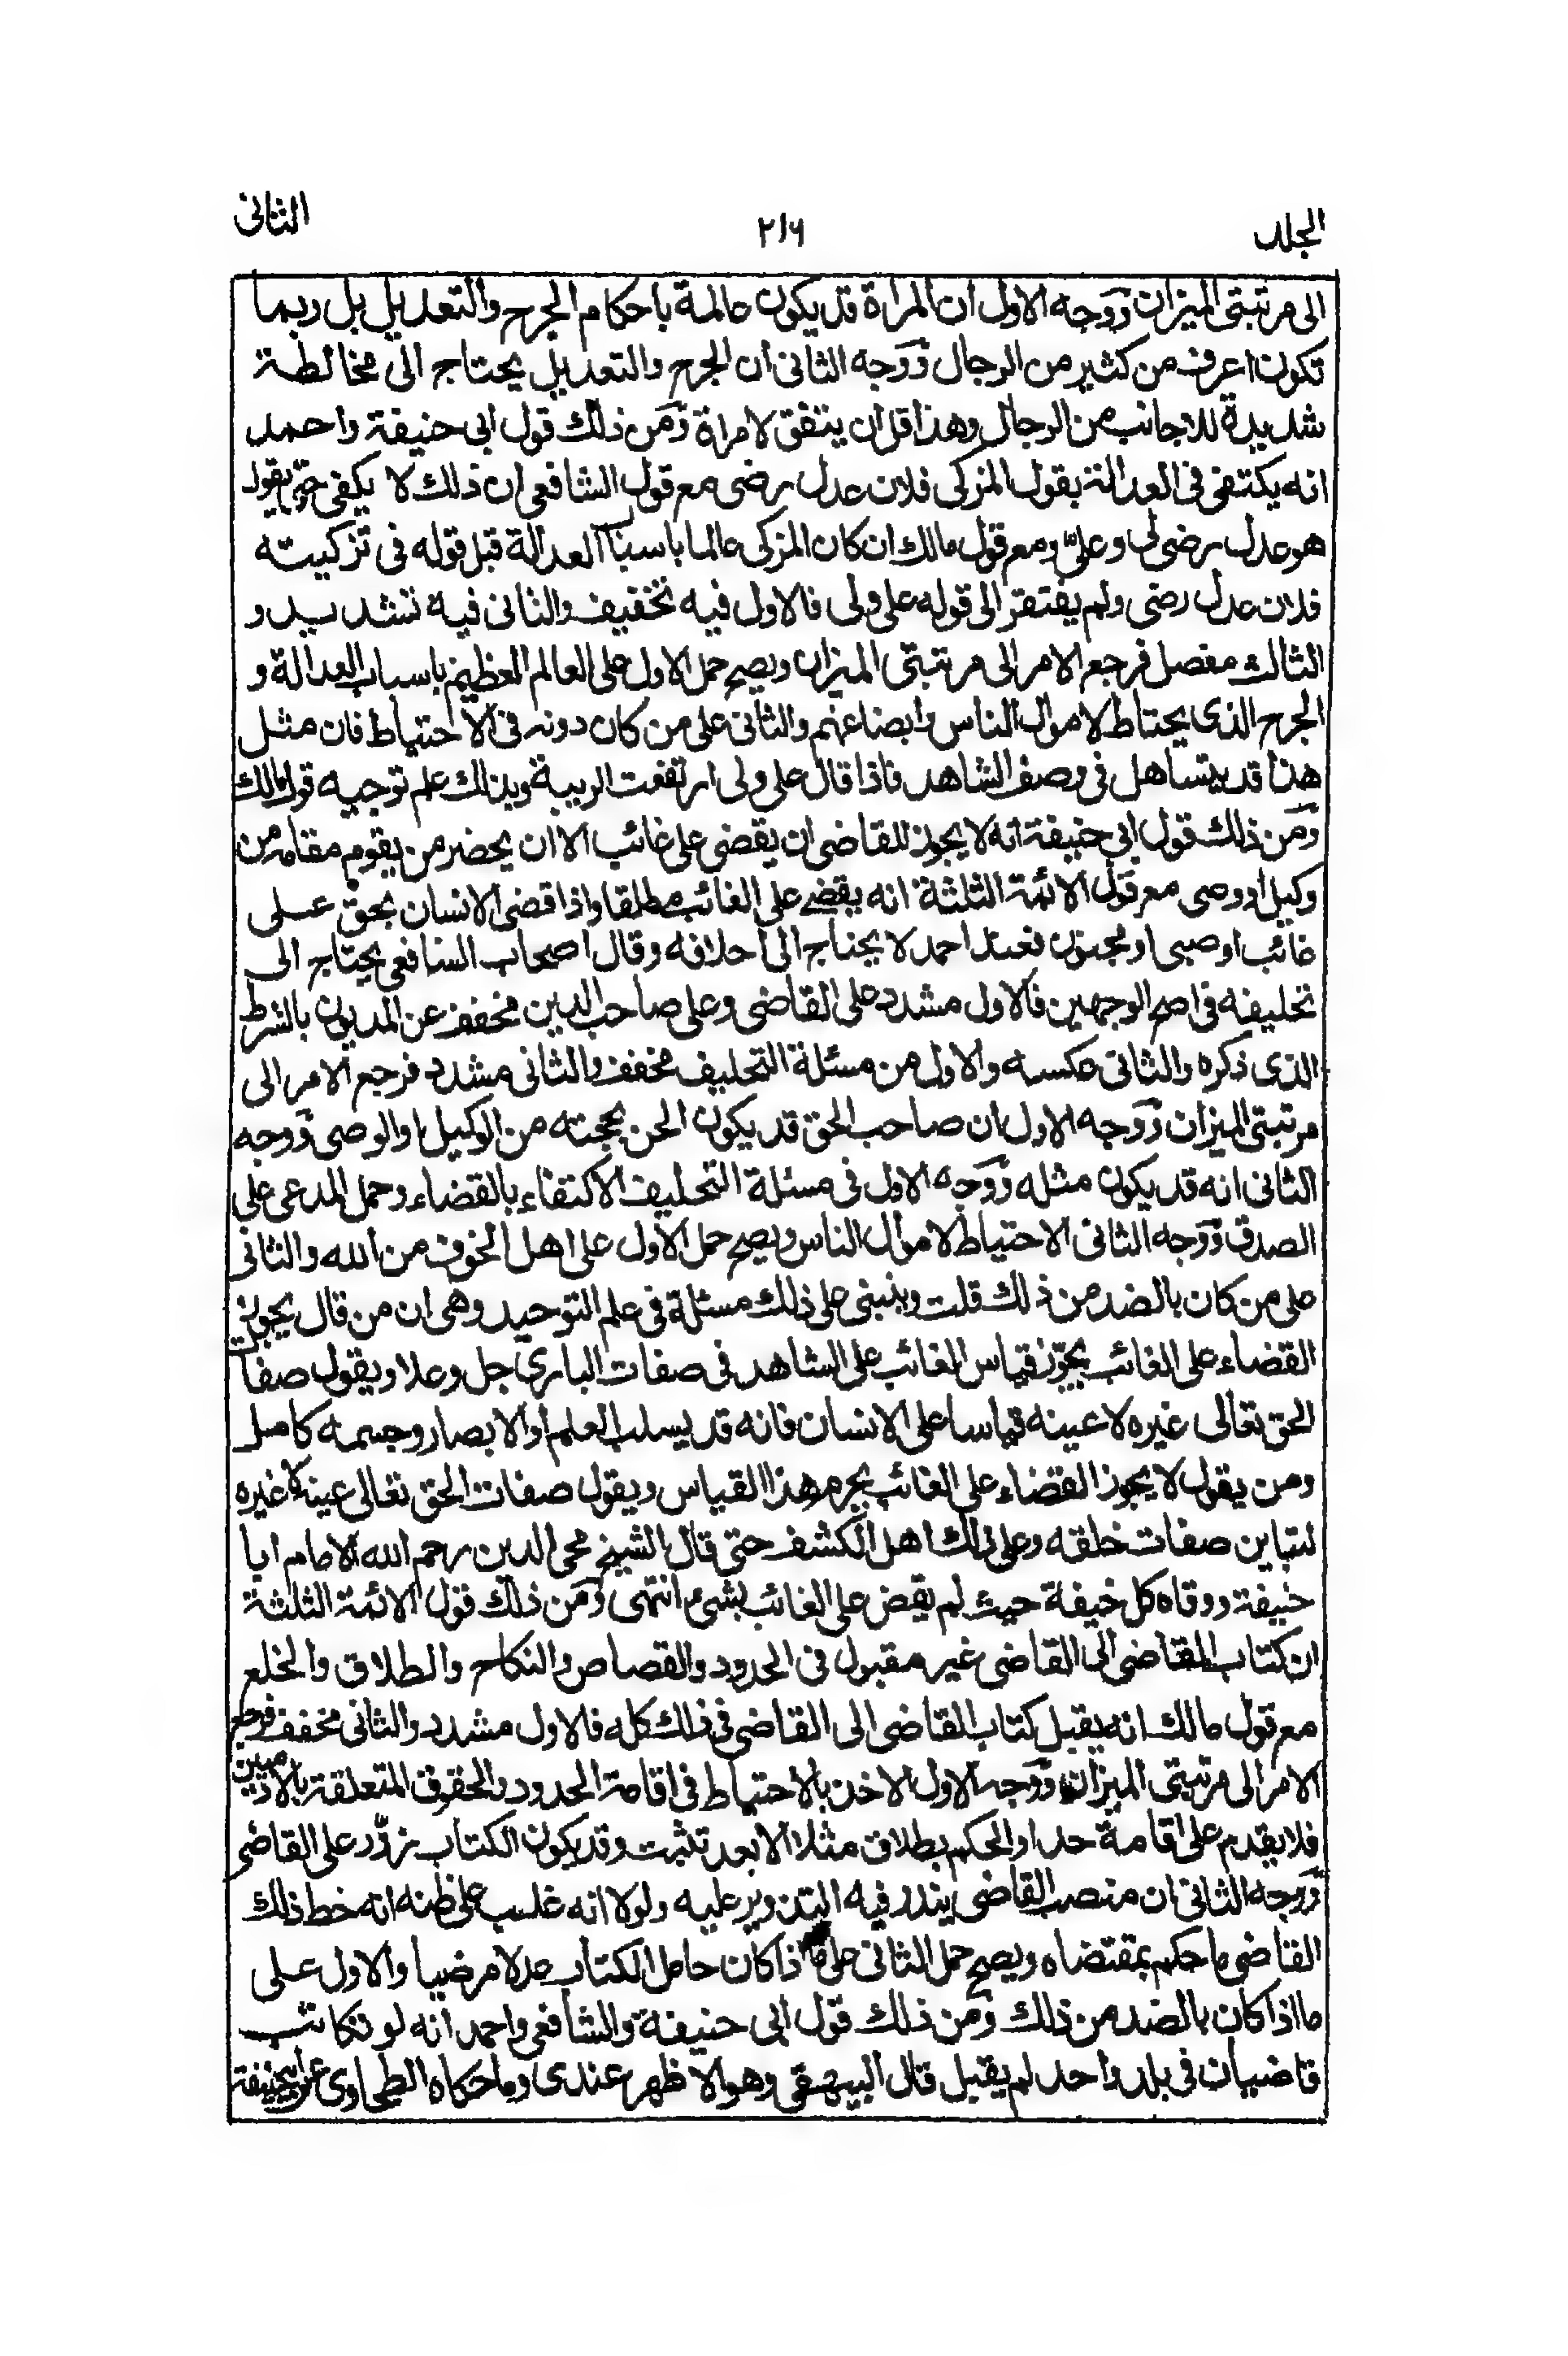 الجلد ۲۱۶ الثانى
الى مرتبتى الميزان ووجه الاول ان المرأة قد يكون عالمة باحكام الجرح والتعديل بل ربما
تكون اعرف من كثير من الرجال ووجه الثانى ان الجرح والتعديل يحتاج الى مخالطة
شديدة للاجانب من الرجال وهذا قل ان يتفق لامراة ومن ذلك قول ابى حنيفة واحمد
انه يكتفى فى العدالة بقول المزكى فلان عدل رضى مع قول الشافعى ان ذلك لا يكفى حتى يقول
هو عدل رضى لى وعلىّ ومع قول مالك ان كان المزكى عالما باسباب العدالة قبل قوله فى تزكيته
فلان عدل رضى ولم يفتقر الى قوله على ولى فالاول فيه تخفيف والثانى فيه تشديد و
الثالث مفصل فرجع الامر الى مرتبتى الميزان ويصح حمل الاول على العالم العظيم باسباب العدالة و
الجرح الذى يحتاط لاموال الناس وابضاعهم والثانى على من كان دونه فى الاحتياط فان مثل
هذا قد يتساهل فى وصف الشاهد فاذا قال على ولى ارتفعت الريبة وبذلك علم توجيه قول مالك
ومن ذلك قول ابى حنيفة انه لا يجوز للقاضى ان يقضى على غائب الا ان يحضر من يقوم مقامه من
وكيل او وصى مع قول الائمة الثلثة انه يقضے على الغائب مطلقا واذا قضى الانسان بحق على
غائب او صبى او مجنون فعند احمد لا يحتاج الى احلافه وقال اصحاب الشافعى يحتاج الى
تحليفه فى اصح الوجهين فالاول مشدد على القاضى وعلى صاحب الدين مخفف عن المديون بالشرط
الذى ذكره والثانى عكسه والاول من مسئلة التحليف مخفف والثانى مشدد فرجع الامر الى
مرتبتى الميزان ووجه الاول ان صاحب الحق قد يكون الحن بحجته من الوكيل او الوصى ووجه
الثانى انه قد يكون مثله ووجه الاول فى مسئلة التحليف الاكتفاء بالقضاء وحمل المدعى على
الصدق ووجه الثانى الاحتياط لاموال الناس ويصح حمل الاول على اهل الخوف من الله والثانى
على من كان بالضد من ذلك قلت وينبنى على ذلك مسئلة فى علم التوحيد وهى ان من قال يجوز
القضاء على الغائب يجوّز قياس الغائب على الشاهد فى صفات البارى جل وعلا ويقول صفات
الحق تعالى غيره لا عينه قياسا على الانسان فانه قد يسلب العلم او الابصار وجسمه كامل
ومن يقول لا يجوز القضاء على الغائب يحرم هذا القياس ويقول صفات الحق تعالى عينه لا غيره
لتباين صفات خلقه وعلى ذلك اهل الكشف حتى قال الشيخ محى الدين رحم الله الامام ابا
حنيفة ووقاه كل خيفة حيث لم يقض على الغائب بشىء انتهى ومن ذلك قول الائمة الثلثة
ان كتاب القاضى الى القاضى غير مقبول فى الحدود والقصاص والنكاح والطلاق والخلع
مع قول مالك انه يقبل كتاب القاضى الى القاضى فى ذلك كله فالاول مشدد والثانى مخفف فرجع
الامر الى مرتبتى الميزان ووجه الاول الاخذ بالاحتياط فى اقامة الحدود والحقوق المتعلقة بالآدميين
فلا يقدم على اقامة حد او الحكم بطلاق مثلا الا بعد تثبت وقد يكون الكتاب زوّر على القاضى
ووجه الثانى ان منصب القاضى يندر فيه التزوير عليه ولولا انه غلب على ظنه انه خط ذلك
القاضى ما حكم بمقتضاه ويصح حمل الثانى على ما اذا كان حامل الكتاب عدلا مرضيا والاول على
ما اذا كان بالضد من ذلك ومن ذلك قول ابى حنيفة والشافعى واحمد انه لو تكاتب
قاضيان فى بلد واحد لم يقبل قال البيهقى وهو الاظهر عندى وما حكاه الطحاوى عن ابيحنيفة